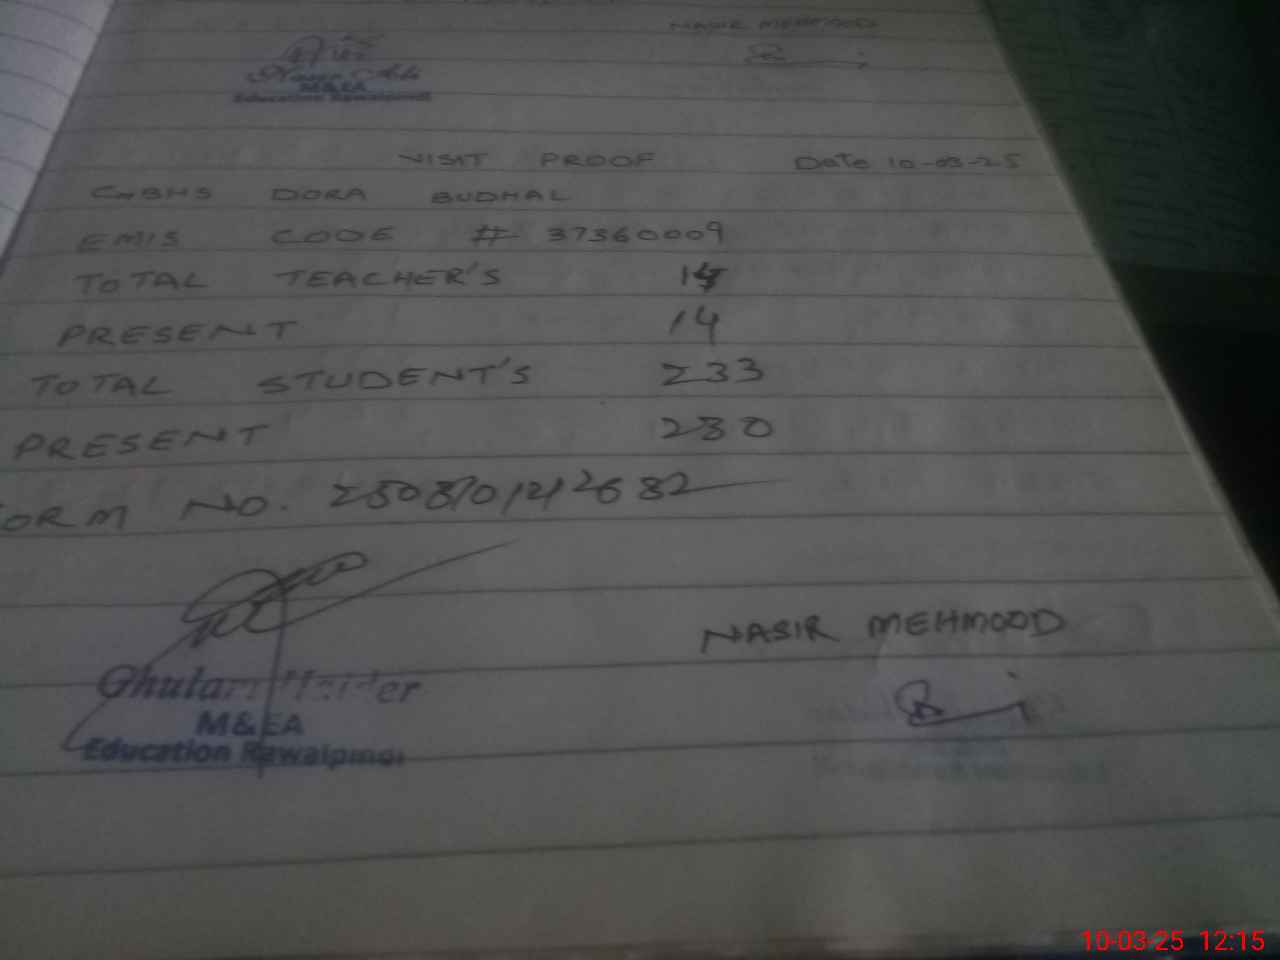 NASIR MEHMOOD
M&EA
Education Rawalpindi
VISIT PROOF Date 10-03-25
GBHS DORA BUDHAL
EMIS CODE # 37360009
TOTAL TEACHER'S 14
PRESENT 14
TOTAL STUDENT'S 233
PRESENT 230
ORM NO.
Ghulam Haider
NASIR MEHMOOD
M&EA
Education Rawalpindi
10-03-25 12:15